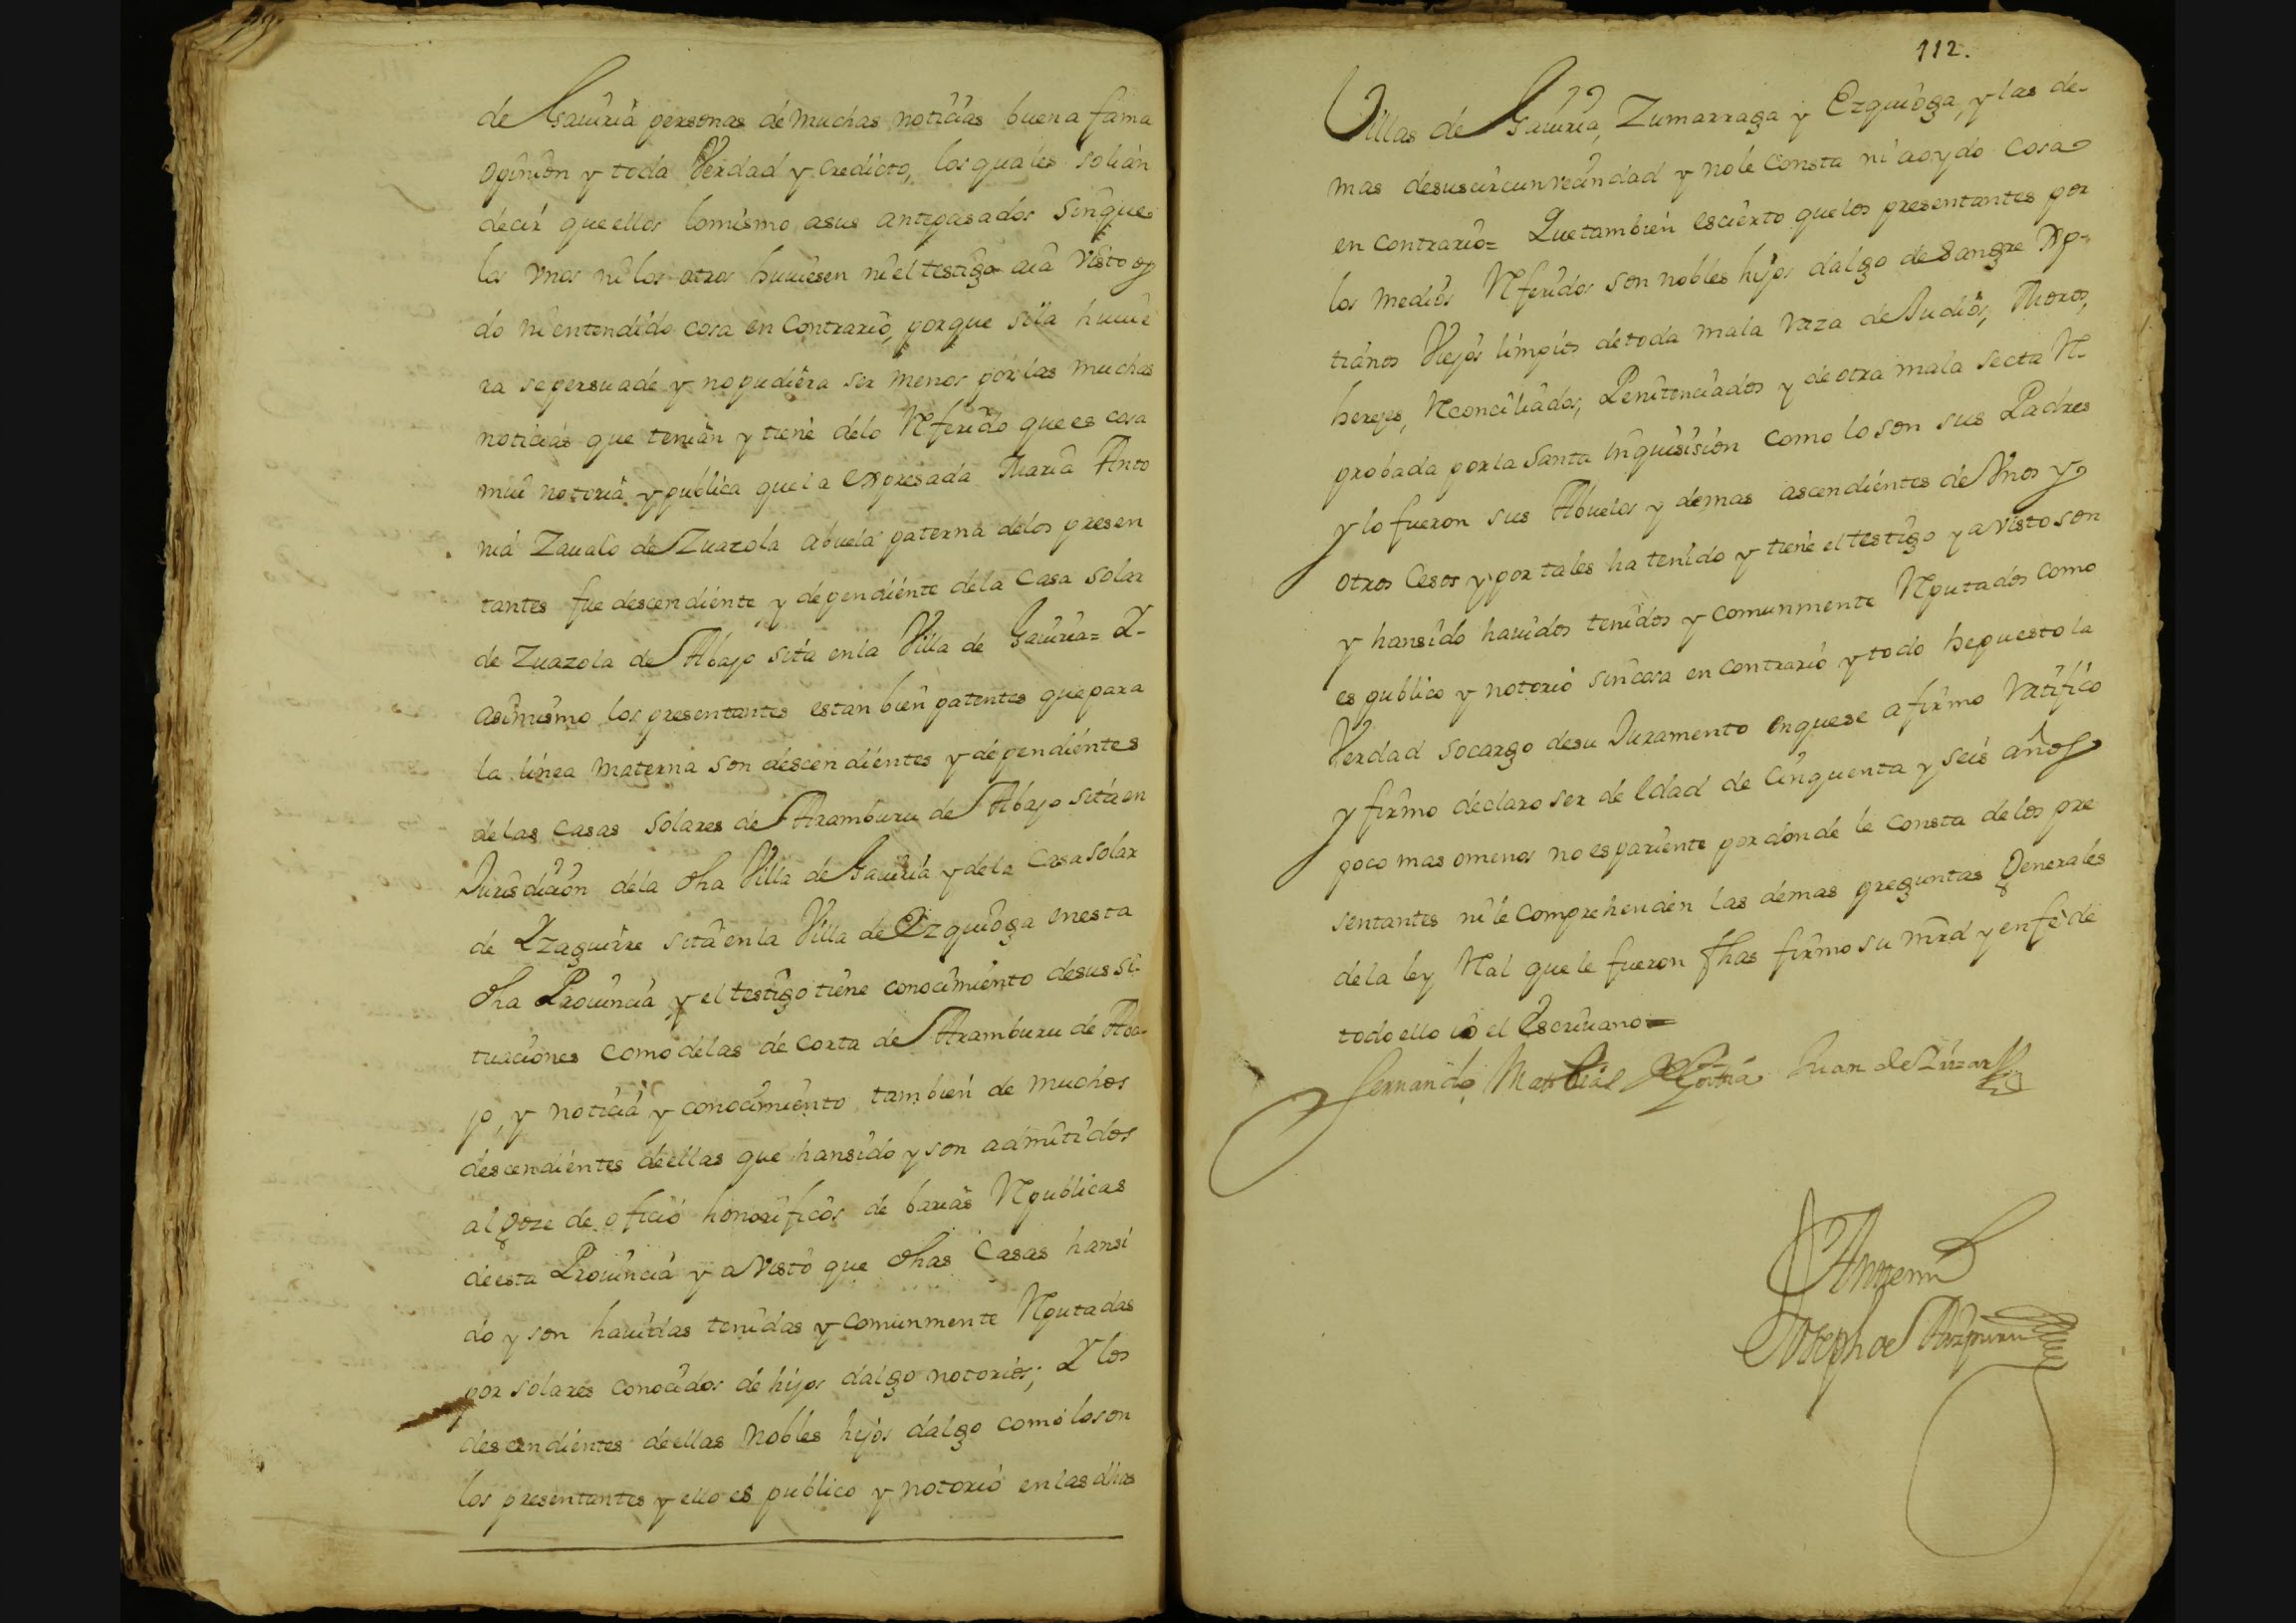 de Gauiria personas de muchas noticias buena fama
opinion y toda Verdad y credicto, los quales solian
decir que ellos lo mismo a sus antepasados sin que
los vnos ni los otros huuiesen ni el testigo aia visto oy
do ni entendido cosa en Contrario, porque si la huuie
ra se persuade y no pudiera ser menos por las muchas
noticias que tenian y tiene de lo Referido que es cosa
mui notoria y publica que la expresada Maria Anto
nia Zaualo de Zuazola abuela paterna de los presen
tantes fue descendiente y dependiente de la Casa solar
de Zuazola de Abajo sita en la Villa de Gauiria= Y
asimismo los presentantes estan bien patentes que para
la linea materna son descendientes y dependientes
de las Casas solares de Aramburu de Abajo sita en
Jurisdicion de la dha Villa de Gauiria y de la Casa solar
de Yzaguirre sita en la Villa de Ezquioga en esta
dha Prouincia y el testigo tiene conocimiento de sus si-
tuaciones como de las de corta de Aramburu de Aba-
jo, y noticia y conocimiento tambien de muchos
descendientes de ellas que han sido y son admitidos
al goze de oficio honorificos de barias Republicas
de esta Prouincia y a visto que dhas Casas han si
do y son hauidas tenidas y comunmente Reputadas
por solares conocidos de hijos dalgo notorios; Y los
descendientes de ellas nobles hijos dalgo como lo son
los presentantes y ello es publico y notorio en las dhas
112.
Villas de Gauiria, Zumarraga y Ezquioga, y las de-
mas de su circunvecindad y no le Consta ni a oydo Cosa
en Contrario= Que tambien es cierto que los presentantes por
los medios Referidos son nobles hijos dalgo de Sangre Xp-
tianos Viejos limpios de toda mala raza de Judios, Moros,
herejes, Reconciliados, Penitenciados y de otra mala secta Re-
probada por la Santa Inquisision como lo son sus Padres
y lo fueron sus Abuelos y demas ascendientes de Vnos y
otros Cesos y por tales ha tenido y tiene el testigo y a visto son
y han sido hauidos tenidos y comunmente Reputados como
es publico y notorio sin cosa en contrario y todo he puesto la
Verdad so cargo de su Juramento en que se afirmo ratifico
y firmo declaro ser de Edad de Cinquenta y seis años
poco mas o menos no es pariente por donde le consta de los pre
sentantes ni le comprehenden las demas preguntas Generales
de la ley Real que le fueron fhas firmo su mrd y en fe de
todo ello io el Escriuano=
Fernando Juan de
Antemi
Joseph de Aizpuru